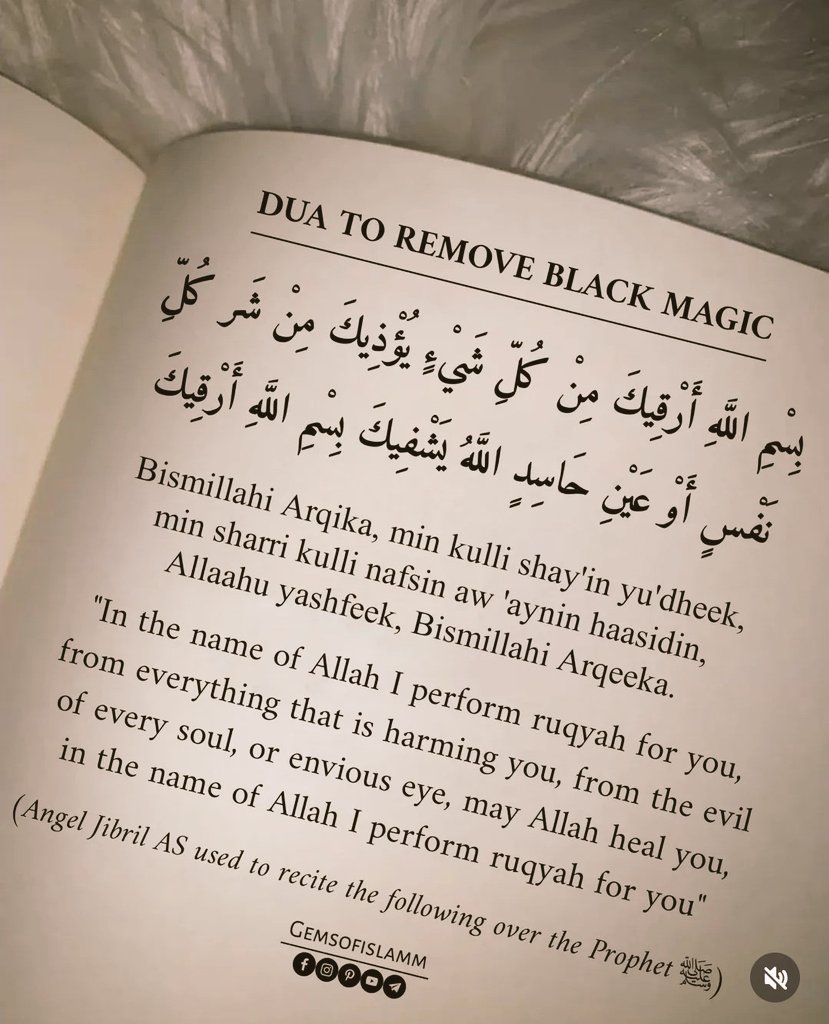 DUA TO REMOVE BLACK MAGIC
بِسْمِ اللَّهِ أَرْقِيكَ مِنْ كُلِّ شَيْءٍ يُؤْذِيكَ مِنْ شَر كُلِّ
نَفْسٍ أَوْ عَيْنِ حَاسِدٍ اللَّهُ يَشْفِيكَ بِسْمِ اللَّهِ أَرْقِيكَ
Bismillahi Arqika, min kulli shay'in yu'dheek,
min sharri kulli nafsin aw 'aynin haasidin,
Allaahu yashfeek, Bismillahi Arqeeka.
"In the name of Allah I perform ruqyah for you,
from everything that is harming you, from the evil
of every soul, or envious eye, may Allah heal you,
in the name of Allah I perform ruqyah for you"
(Angel Jibril AS used to recite the following over the Prophet ﷺ)
GEMSOFISLAMM